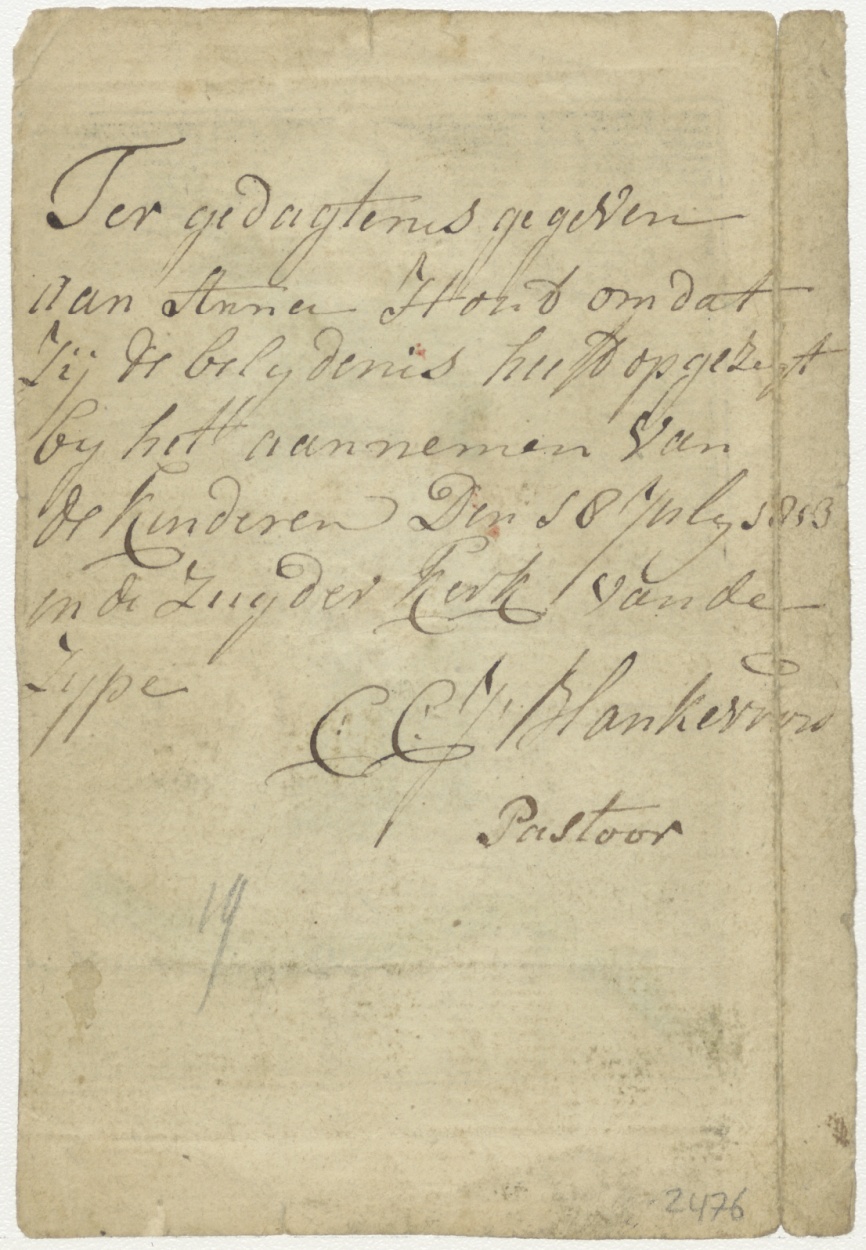 Ter gedagtenis gegeven
aan Anna Houd omdat
Zij de belydenis heeft opgezegt
by hett aannemen van
de kinderen Den 18 July 1813
in de Zuyder kerk van de
Zype
C: C: J: Blankevoord
Pastoor
19
2476